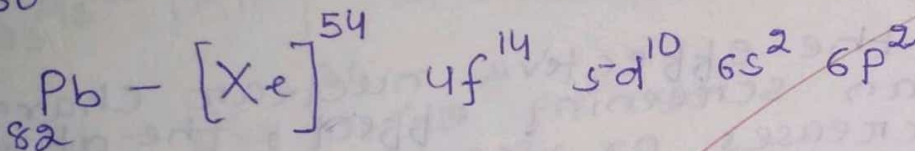 ₈₂Pb - [Xe]⁵⁴ 4f¹⁴ 5d¹⁰ 6s² 6p²